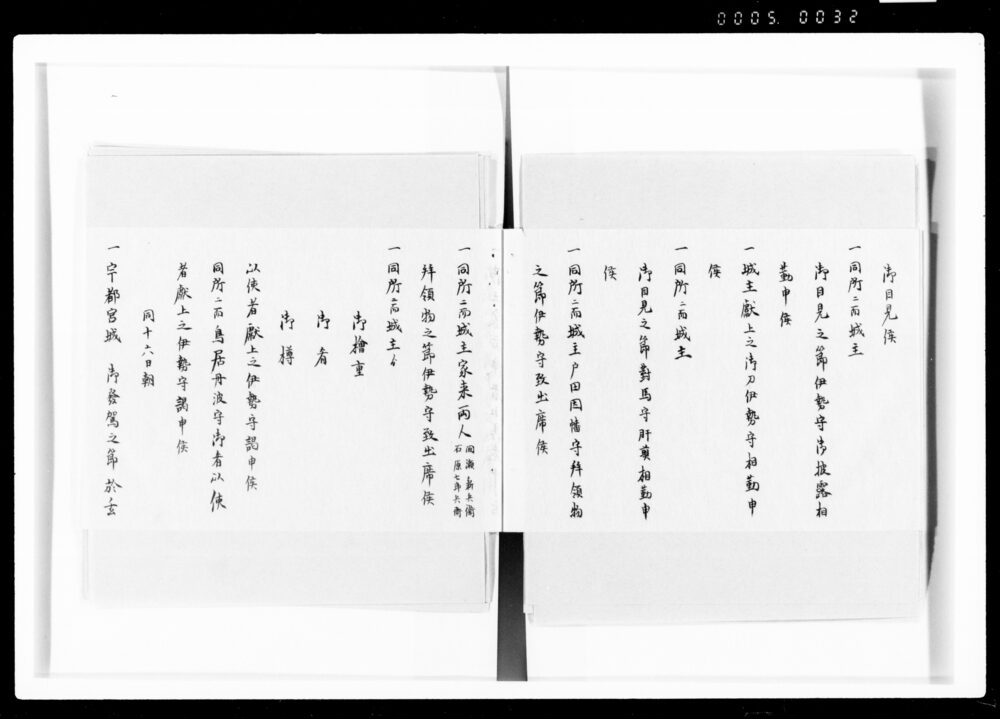 0005. 0032
御目見候
一同所ニ而城主
御目見之節伊勢守御披露相
勤申候
一城主献上之御刀伊勢守相勤申
候
一同所ニ而城主
御目見之節對馬守肝煎相勤申
候
一同所ニ而城主戸田因幡守拜領物
之節伊勢守致出席候
一同所ニ而城主家来両人
岡瀬新兵衛
石原七郎兵衛
拜領物之節伊勢守致出席候
一同所ニ而城主ゟ
御檜重
御肴
御樽
以使者獻上之伊勢守謁申候
同所ニ而鳥居丹波守御肴以使
者獻上之伊勢守謁申候
同十六日朝
一宇都宮城 御發駕之節於玄